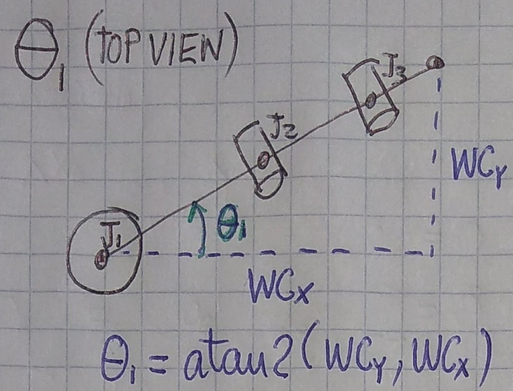 θ₁ (TOP VIEW)
J₃
J₂
WCY
θ₁
J₁
WCX
θ₁ = atan2(WCY, WCX)